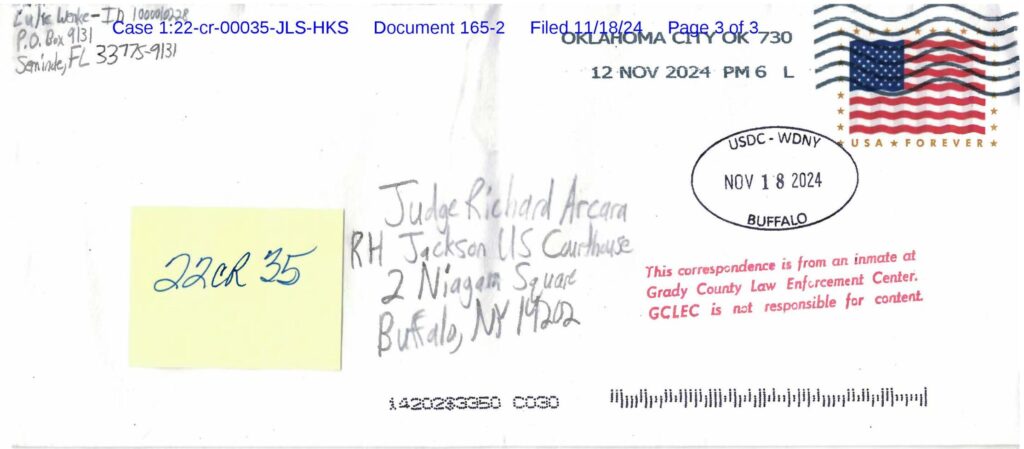 Case 1:22-cr-00035-JLS-HKS Document 165-2 Filed 11/18/24 Page 3 of 3
Luke Wenke-ID
P.O. Box 9131
Seminole, FL 33775-9131
OKLAHOMA CITY OK 730
12 NOV 2024 PM 6 L
USA FOREVER
USDC - WDNY
NOV 18 2024
BUFFALO
Judge Richard Arcara
RH Jackson US Courthouse
2 Niagara Square
Buffalo, NY 14202
22CR 35
This correspondence is from an inmate at
Grady County Law Enforcement Center.
GCLEC is not responsible for content.
14202$3350 C030